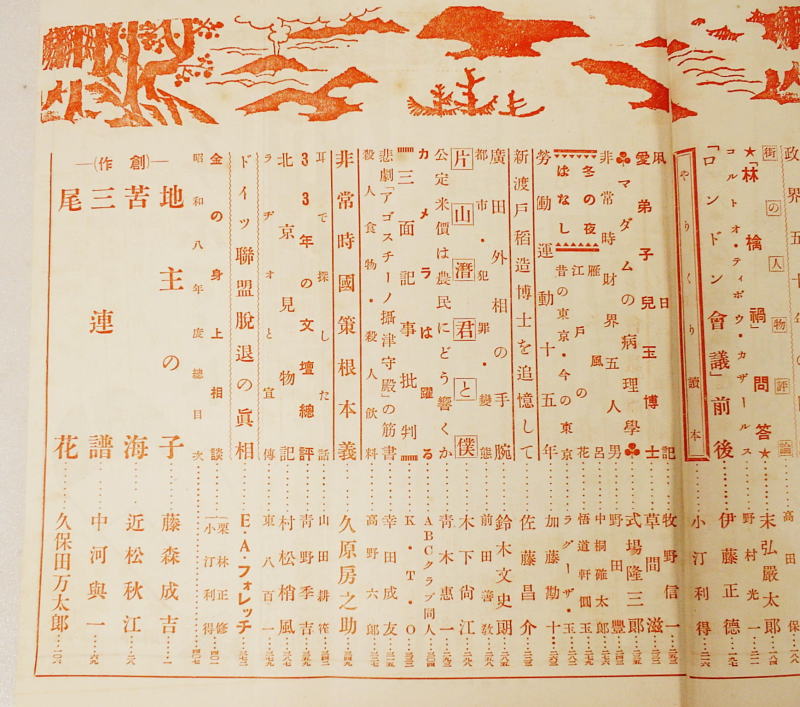 政界五十年の
街の人物評論……高田保
★「林檎禍問答★……末弘嚴太郎
コルトオ・ティボウ・カザールス……野村光一
「ロンドン會議」前後……伊藤正德
やりくり讀本……小汀利得
夙日記……牧野信一
愛弟子兒玉博士……草間滋
♣マダムの病理學♣……式場隆三郎
非常時財界五人男……野田豐
冬の夜ばなし
雁風呂……中桐確太郎
江戸の花……悟道軒圓玉
昔の東京・今の東京……ラグーザ・玉
勞働運動十五年……加藤勘十
新渡戸稻造博士を追憶して……佐藤昌介
廣田外相の手腕……鈴木文史朗
都市・犯罪・變態……前田善敎
片山潛君と僕……木下尙江
公定米價は農民にどう響くか……靑木惠一
カメラは躍る……ABCクラブ同人
三面記事批判……K・T・O
悲劇「アゴスチーノ攝津守殿」の筋書……幸田成友
殺人食物・殺人飮料……高野六郎
非常時國策根本義……久原房之助
耳で探した話……山田耕筰
33年の文壇總評……靑野季吉
北京見物記……村松梢風
ラヂオと宣傳……東八百一
ドイツ聯盟脫退の眞相……E・A・フォレッチ
金の身上相談……栗林正修 小汀利得
昭和八年度總目次
―(創作)―
地主の子……藤森成吉
苦海……近松秋江
三連譜……中河與一
尾花……久保田万太郎